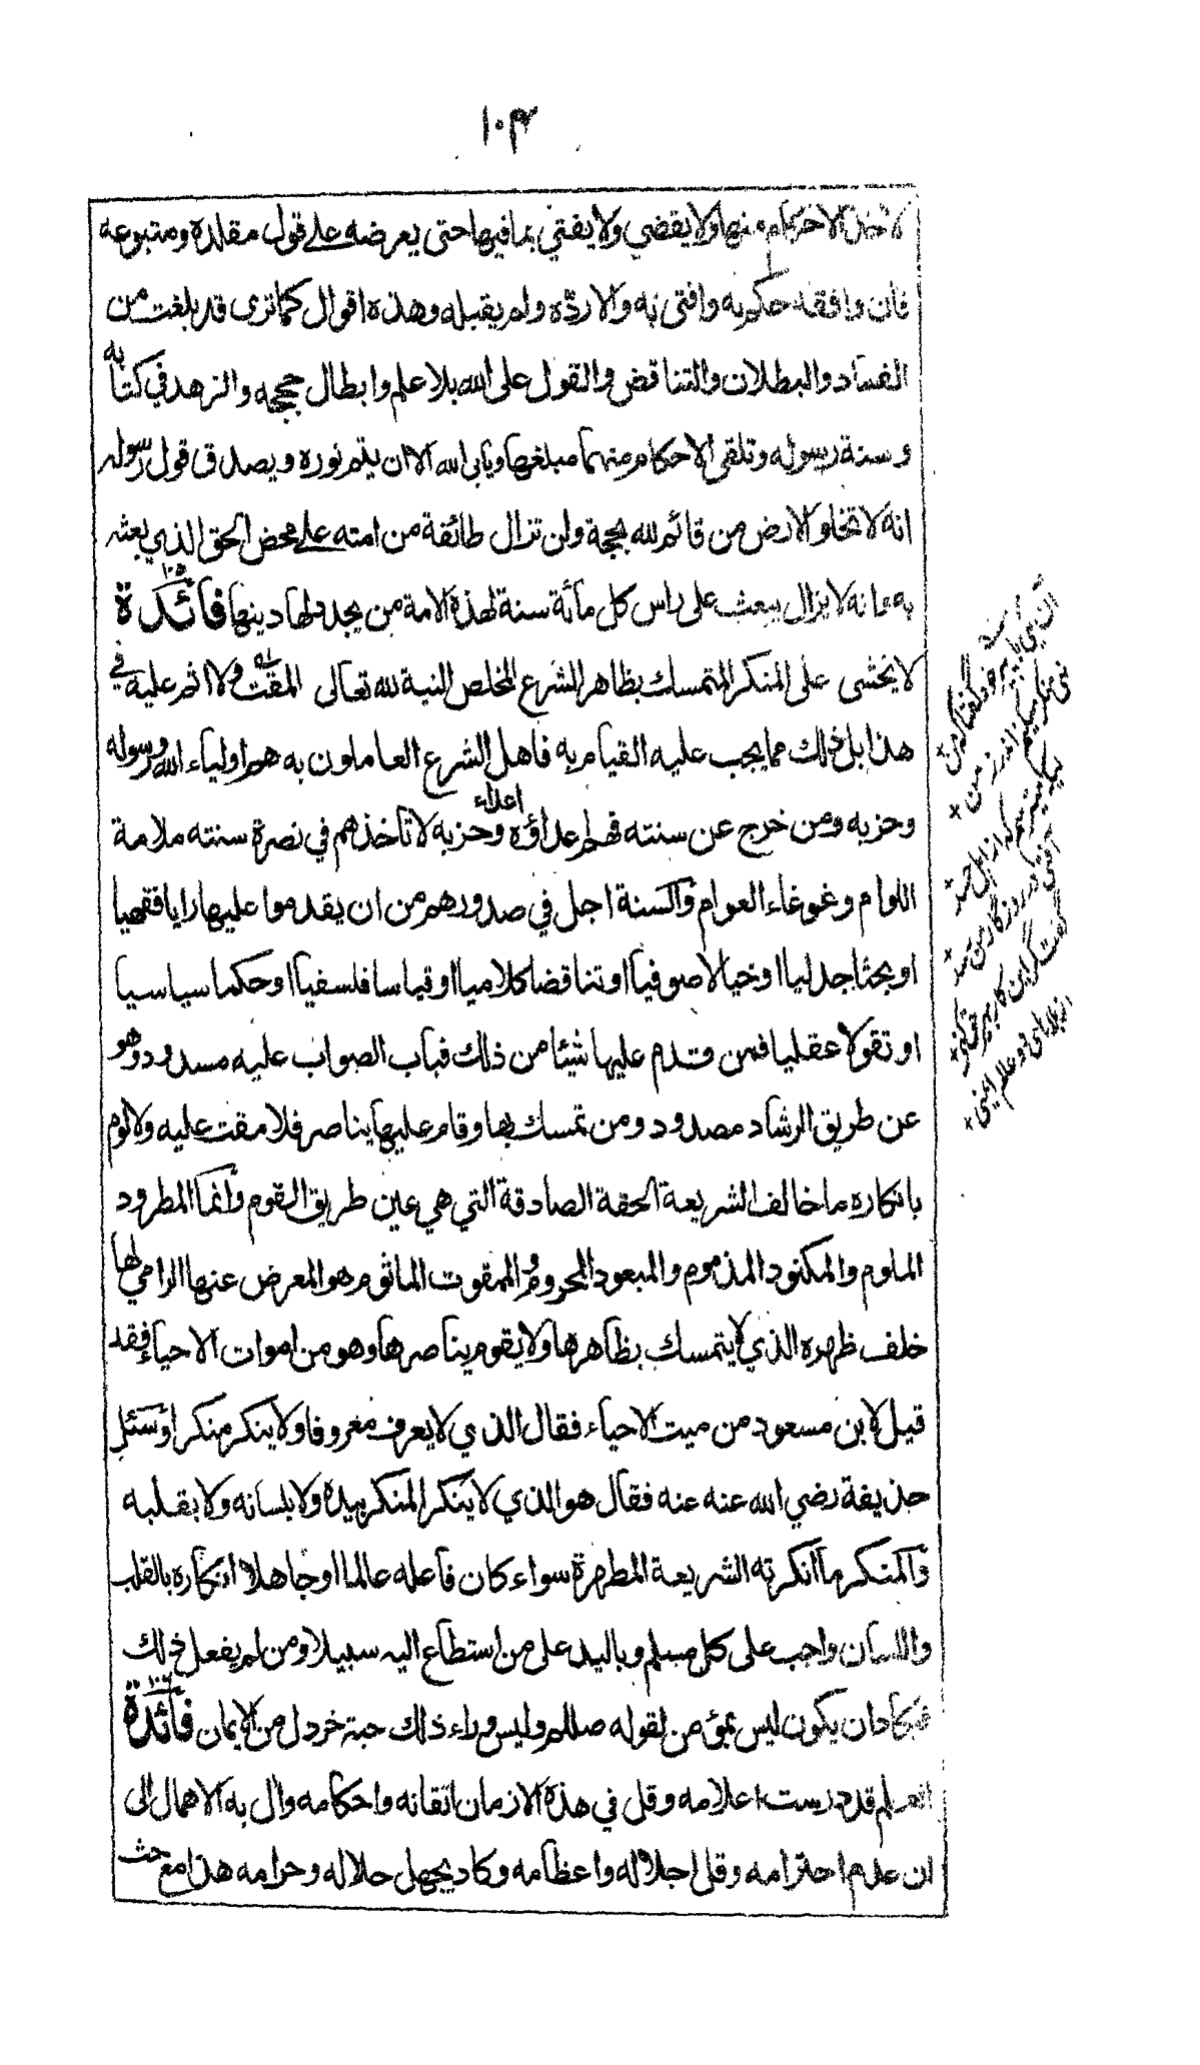 ١٠٣
لاخذ الاحكام منها ولا يقضي ولا يفتي بما فيها حتى يعرضه على قول مقلده ومتبوعه
فان وافقه حكم به وافتى به والا ردّه ولم يقبله وهذه اقوال كما ترى قد بلغت من
الفساد والبطلان والتناقض والقول على الله بلا علم وابطال حججه والزهد في كتابه
وسنة رسوله وتلقي الاحكام منهما مبلغها ويابى الله الا ان يتم نوره ويصدق قول رسوله
انه لا تخلو الارض من قائم لله بحجة ولن تزال طائفة من امته على محض الحق الذي بعثه
به وانه لا يزال يبعث على راس كل مائة سنة لهذه الامة من يجدد لها دينها فائدة ١٠٥
لا يخشى على المنكر المتمسك بظاهر الشرع المخلص النية لله تعالى المقت ولا اثم عليه في
هذا بل ذلك مما يجب عليه القيام به فاهل الشرع العاملون به هم اولياء الله ورسوله
وحزبه ومن خرج عن سنته فهم اعداؤه اعداء وحزبه لا تاخذهم في نصرة سنته ملامة
اللوام وغوغاء العوام والسنة اجل في صدورهم من ان يقدموا عليها رايا فقهيا
او بحثا جدليا او خيالا صوفيا او تناقضا كلاميا او قياسا فلسفيا او حكما سياسيا
او تقولا عقليا فمن قدم عليها شيئا من ذلك فباب الصواب عليه مسدود وهو
عن طريق الرشاد مصدود ومن تمسك بها وقام عليها يناصر فلا مقت عليه ولا لوم
بانكاره ما خالف الشريعة الحقة الصادقة التي هي عين طريق القوم وانما المطرود
الملوم والمكنود المذموم والمبعود المحروم والممقوت الماثوم هو المعرض عنها الرامي لها
خلف ظهره الذي لا يتمسك بظاهرها ولا يقوم يناصرها وهو من اموات الاحياء فقد
قيل لابن مسعود من ميت الاحياء فقال الذي لا يعرف معروفا ولا ينكر منكرا وسئل
حذيفة رضي الله عنه عنه فقال هو الذي لا ينكر المنكر بيده ولا بلسانه ولا بقلبه
والمنكر ما انكرته الشريعة المطهرة سواء كان فاعله عالما او جاهلا انكاره بالقلب
واللسان واجب على كل مسلم وباليد على من استطاع اليه سبيلا ومن لم يفعل ذلك
فيكاد ان يكون ليس بمؤمن لقوله صللم وليس وراء ذلك حبة خردل من الايمان فائدة
العلم قد درست اعلامه وقل في هذه الازمان اتقانه واحكامه وال به الاهمال الى
ان علم احترامه وقل اجلاله واعظامه وكاد يجهل حلاله وحرامه هذا مع حث